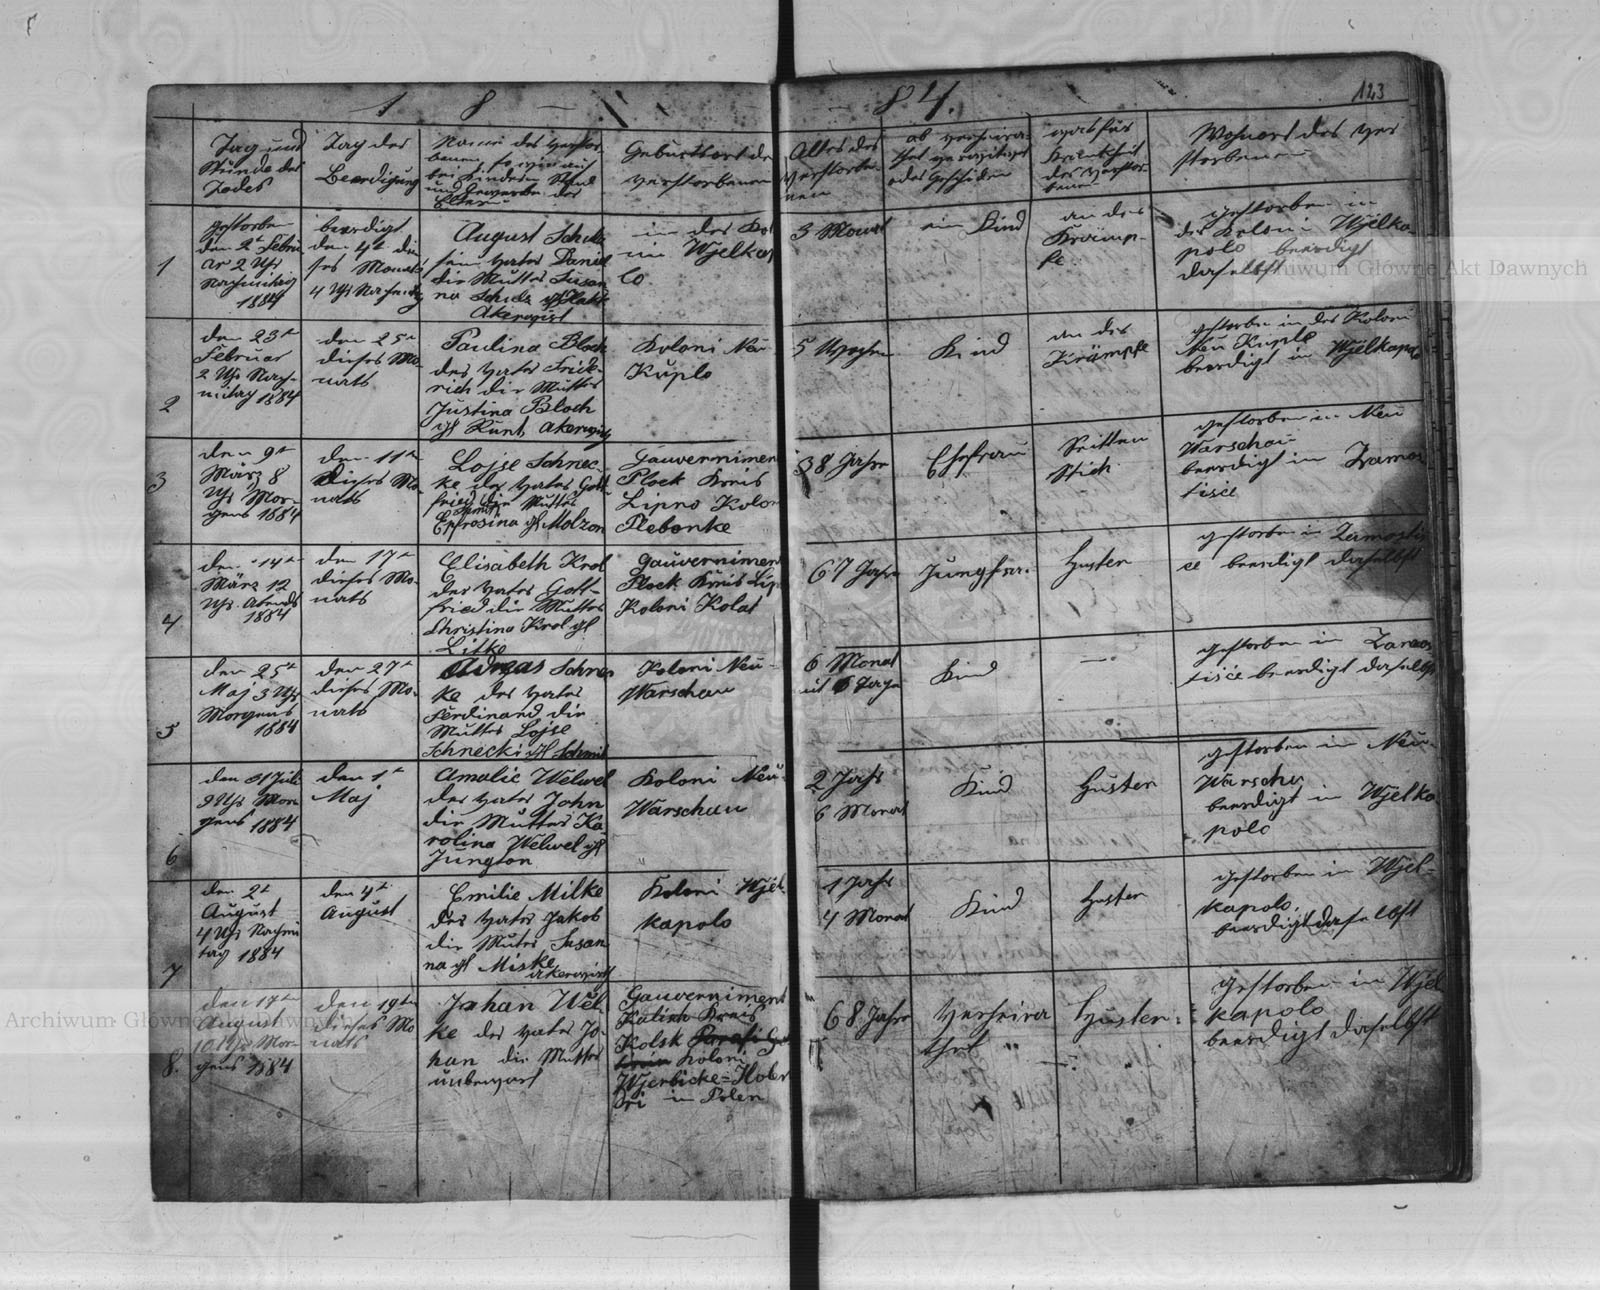 1884.
123
Tag und
Stunde des
Todes
Tag der
Beerdigung
Name des Verstor
benen, so wie auch
bei Kindern Stand
und Gewerbe der
Eltern
Geburtsort de
Verstorbenen
Alter des
Verstorbe
nen
ob verheira-
thet verwitwet
oder geschieden
Krankheit
des Verstor-
benen
Wohnort des Ver
storbenen
1
gestorben
den 2t Febru
ar 2 Uhr
Nachmitag
1884
beerdigt
den 4t die
ses Monats
4 Uhr Nachmitag
August Schulz
sein Vater Daniel
die Mutter Susan
na Schulz
Akerwirt
in der Kol
in Wjelkapo
lo
3 Monat
ein Kind
an der
Krämp-
fe
gestorben in
der Koloni Wjelka
polo beerdigt
daselbst
2
den 23t
Februar
2 Uhr Nach-
mitag 1884
den 25t
dieses Mo-
nats
Paulina Bloch
der Vater Fried-
rich die Mutter
Justina Bloch
gb Kunt, Akerwirt
Koloni Neu
Kuplo
5 Wochen
Kind
an der
Krämpfe
gestorben in der Koloni
Neu Kuplo
beerdigt in Wjelkapolo
3
den 9t
März 8
Uhr Mor-
gens 1884
den 11t
dieses Mo-
nats
Lojse Schnec-
ke der Vater Gott-
fried die Mutter
Epfrosina gb Molzon
Gauvernimen
Plock Kreis
Lipno Kolon
Plebanke
38 Jahre
Ehefrau
Seitten
Stich
gestorben in Neu
Warschau
beerdigt in Zamos
tisie
4
den 14t
März 12
Uhr Abends
1884
den 17t
dieses Mo-
nats
Elisabeth Krol
der Vater Gott-
fried die Mutter
Christina Krol gb
Litke
Gauvernimen
Plock Kreis Lip
Koloni Kolat
67 Jahre
Jungfrau
Husten
gestorben in Zamosti
ce beerdigt daselbst
5
den 25t
Maj 3 Uhr
Morgens
1884
den 27t
dieses Mo-
nats
Adreas Schnec
ke der Vater
Ferdinand die
Mutter Lojse
Schnecki gb Schmit
Koloni Neu-
Warschau
6 Monat
mit 6 Tage
Kind
—
gestorben in Zamos
tisie beerdigt daselbst
6
den 31 Juli
9 Uhr Mor
gens 1884
den 1t
Maj
Amalie Welwel
der Vater John
die Mutter Ka
rolina Welwel gb
Jungton
Koloni Neu-
Warschau
2 Jahr
6 Monat
Kind
Husten
gestorben in Neu-
Warschau
beerdigt in Wjelka
polo
7
den 2t
August
4 Uhr Nachmi
tag 1884
den 4t
August
Emilie Milke
der Vater Jakob
die Muter Susan
na gb Miske
Akerwirt
Koloni Wjel
kapolo
1 Jahr
4 Monat
Kind
Husten
gestorben in Wjel-
kapolo,
beerdigt daselbst
8.
den 17t
August
10 Uhr Mor-
gens 1884
den 19t
dieses Mo
nats
Johan Wel-
ke der Vater Jo-
han die Mutter
unbewust
Gauverniment
Kalisch Kreis
Kolsk
Koloni
Wjerbicke=Holen
dri in Polen
68 Jahre
Verheira
thet
Husten
gestorben in Wjel
kapolo
beerdigt daselbst
Archiwum Główne Akt Dawnych
Archiwum Główne Akt Dawnych